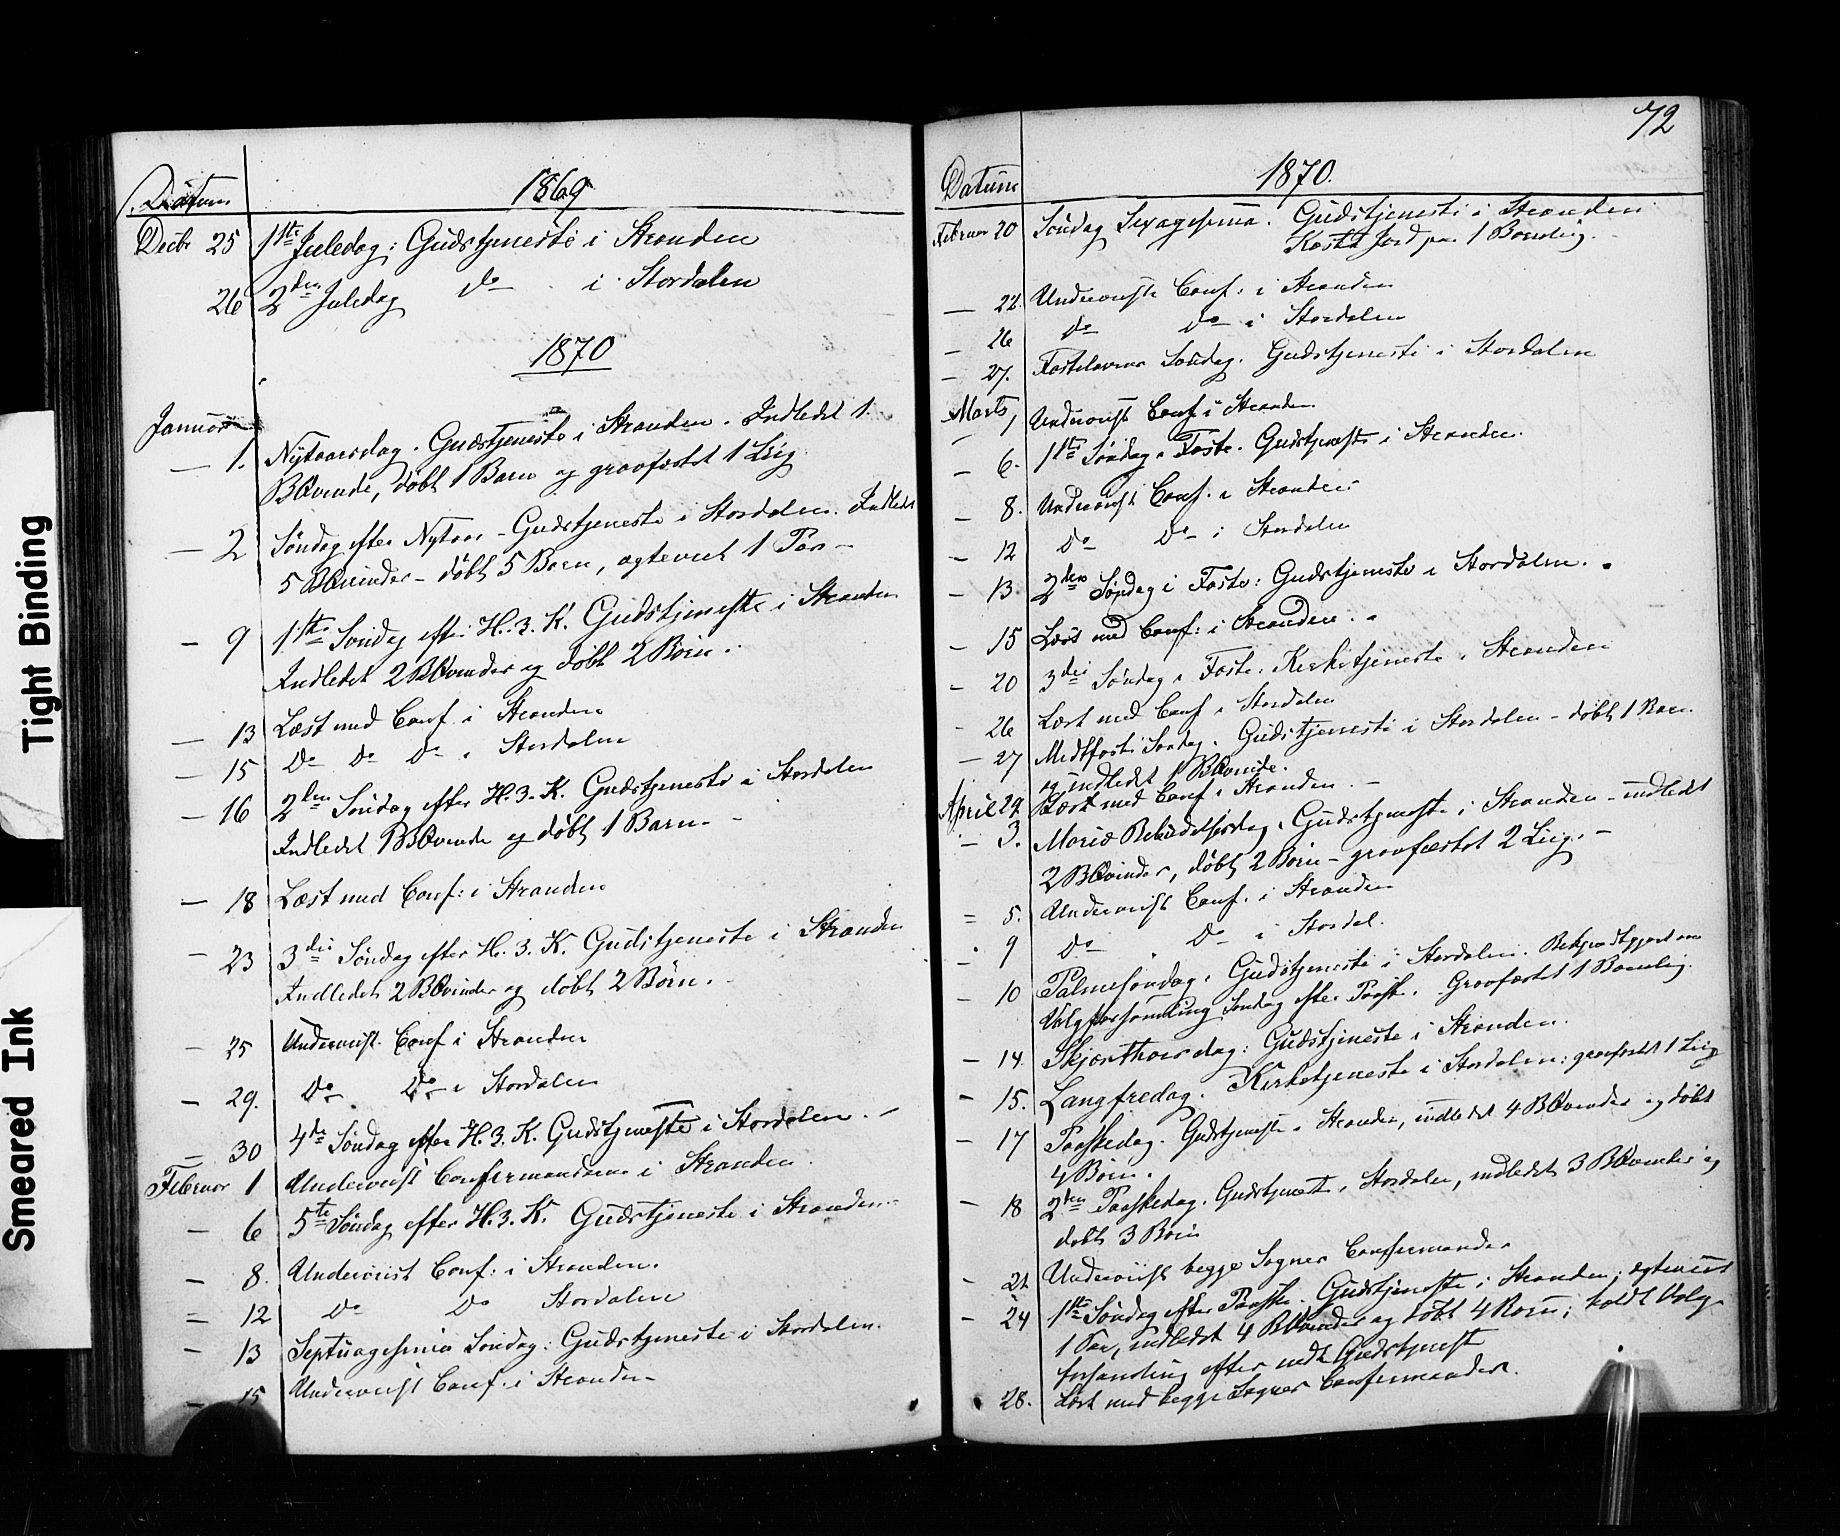 Datum 1869
Decbr 25 1ste Juledag: Gudstjeneste i Stranden
26 2den Juledag Do i Stordalen
1870
Januar
— 1. Nytaarsdag. Gudstjeneste i Stranden. Indledet 1.
BQvinde, døbt 1 Barn og gravfæstet 1 Liig.
— 2 Søndag efter Nytaar – Gudstjeneste i Stordalen. Indledet
5 BQvinder – døbt 5 Børn, ægteviet 1 Par –
— 9 1ste Søndag efter H. 3. K. Gudstjeneste i Stranden
Indledet 2 BQvinder og døbt 2 Børn.
— 13 Læst med Conf. i Stranden
— 15 Do Do Do i Stordalen
— 16 2den Søndag efter H. 3. K. Gudstjeneste i Stordalen
Indledet 1 BQvinde og døbt 1 Barn. –
— 18 Læst med Conf: i Stranden
— 23 3die Søndag efter H. 3. K. Gudstjeneste i Stranden
Indledet 2 BQvinder og døbt 2 Børn.
— 25 Underviist Conf i Stranden
— 29. Do Do i Stordalen
— 30 4de Søndag efter H. 3. K. Gudstjeneste i Stordalen. –
Februar 1 Underviist Confirmanderne i Stranden.
— 6 5te Søndag efter H. 3. K. Gudstjeneste i Stranden. –
— 8. Underviist Conf: i Stranden.
— 12 Do Do Stordalen
— 13 Septuagesima Søndag: Gudstjeneste i Stordalen.
— 15 Underviist Conf. i Stranden
72
Datum 1870.
Februar 20 Søndag Sexagesima. Gudstjeneste i Stranden
Kastet Jord paa 1 Barnelig. –
— 22. Underviist Conf: i Stranden
— 26 Do Do i Stordalen
— 27. Fastelavns Søndag. Gudstjeneste i Stordalen
Marts 1 Underviist Conf i Stranden
— 6. 1ste Søndag i Faste. Gudstjeneste i Stranden.
— 8. Underviist Conf. i Stranden
— 12 Do Do i Stordalen
— 13 2den Søndag i Faste: Gudstjeneste i Stordalen.
— 15 Læst med Conf: i Stranden.
— 20 3die Søndag i Faste. Kirketjeneste i Stranden
— 26 Læst med Conf i Stordalen
— 27 Midtfaste Søndag. Gudstjeneste i Stordalen – døbt 1 Barn
og indledet 1 BQvinde.
April 29 Læst med Conf i Stranden. –
— 3. Mariæ Bebudelsesdag. Gudstjeneste i Stranden – indledet
2 BQvinder, døbt 2 Børn – gravfæstet 2 Liig. –
— 5. Underviist Conf. i Stranden
— 9 Do Do i Stordal.
— 10 Palmesøndag. Gudstjeneste i Stordalen. Bekjendtgjort om
Valgforsamling Søndag efter Paaske. Gravfæstet 1 Barnelig.
— 14. Skjærthorsdag: Gudstjeneste i Stranden.
— 15. Langfredag. Kirketjeneste i Stordalen: gravfæstet 1 Liig
— 17 Paaskedag. Gudstjeneste i Stranden, indledet 4 BQvinder og døbt
4 Børn.
— 18 2den Paaskedag. Gudstjeneste i Stordalen, indledet 3 BQvinder og
døbt 3 Børn
— 21 Underviist begge Sognes Confirmander
— 24 1ste Søndag efter Paaske. Gudstjeneste i Stranden; ægteviet
1 Par, indledet 4 BQvinder og døbt 4 Børn; holdt Valg
forhandling efter endt Gudstjenest
28. Læst med begge Sognes Confirmander.
Tight Binding
Smeared Ink